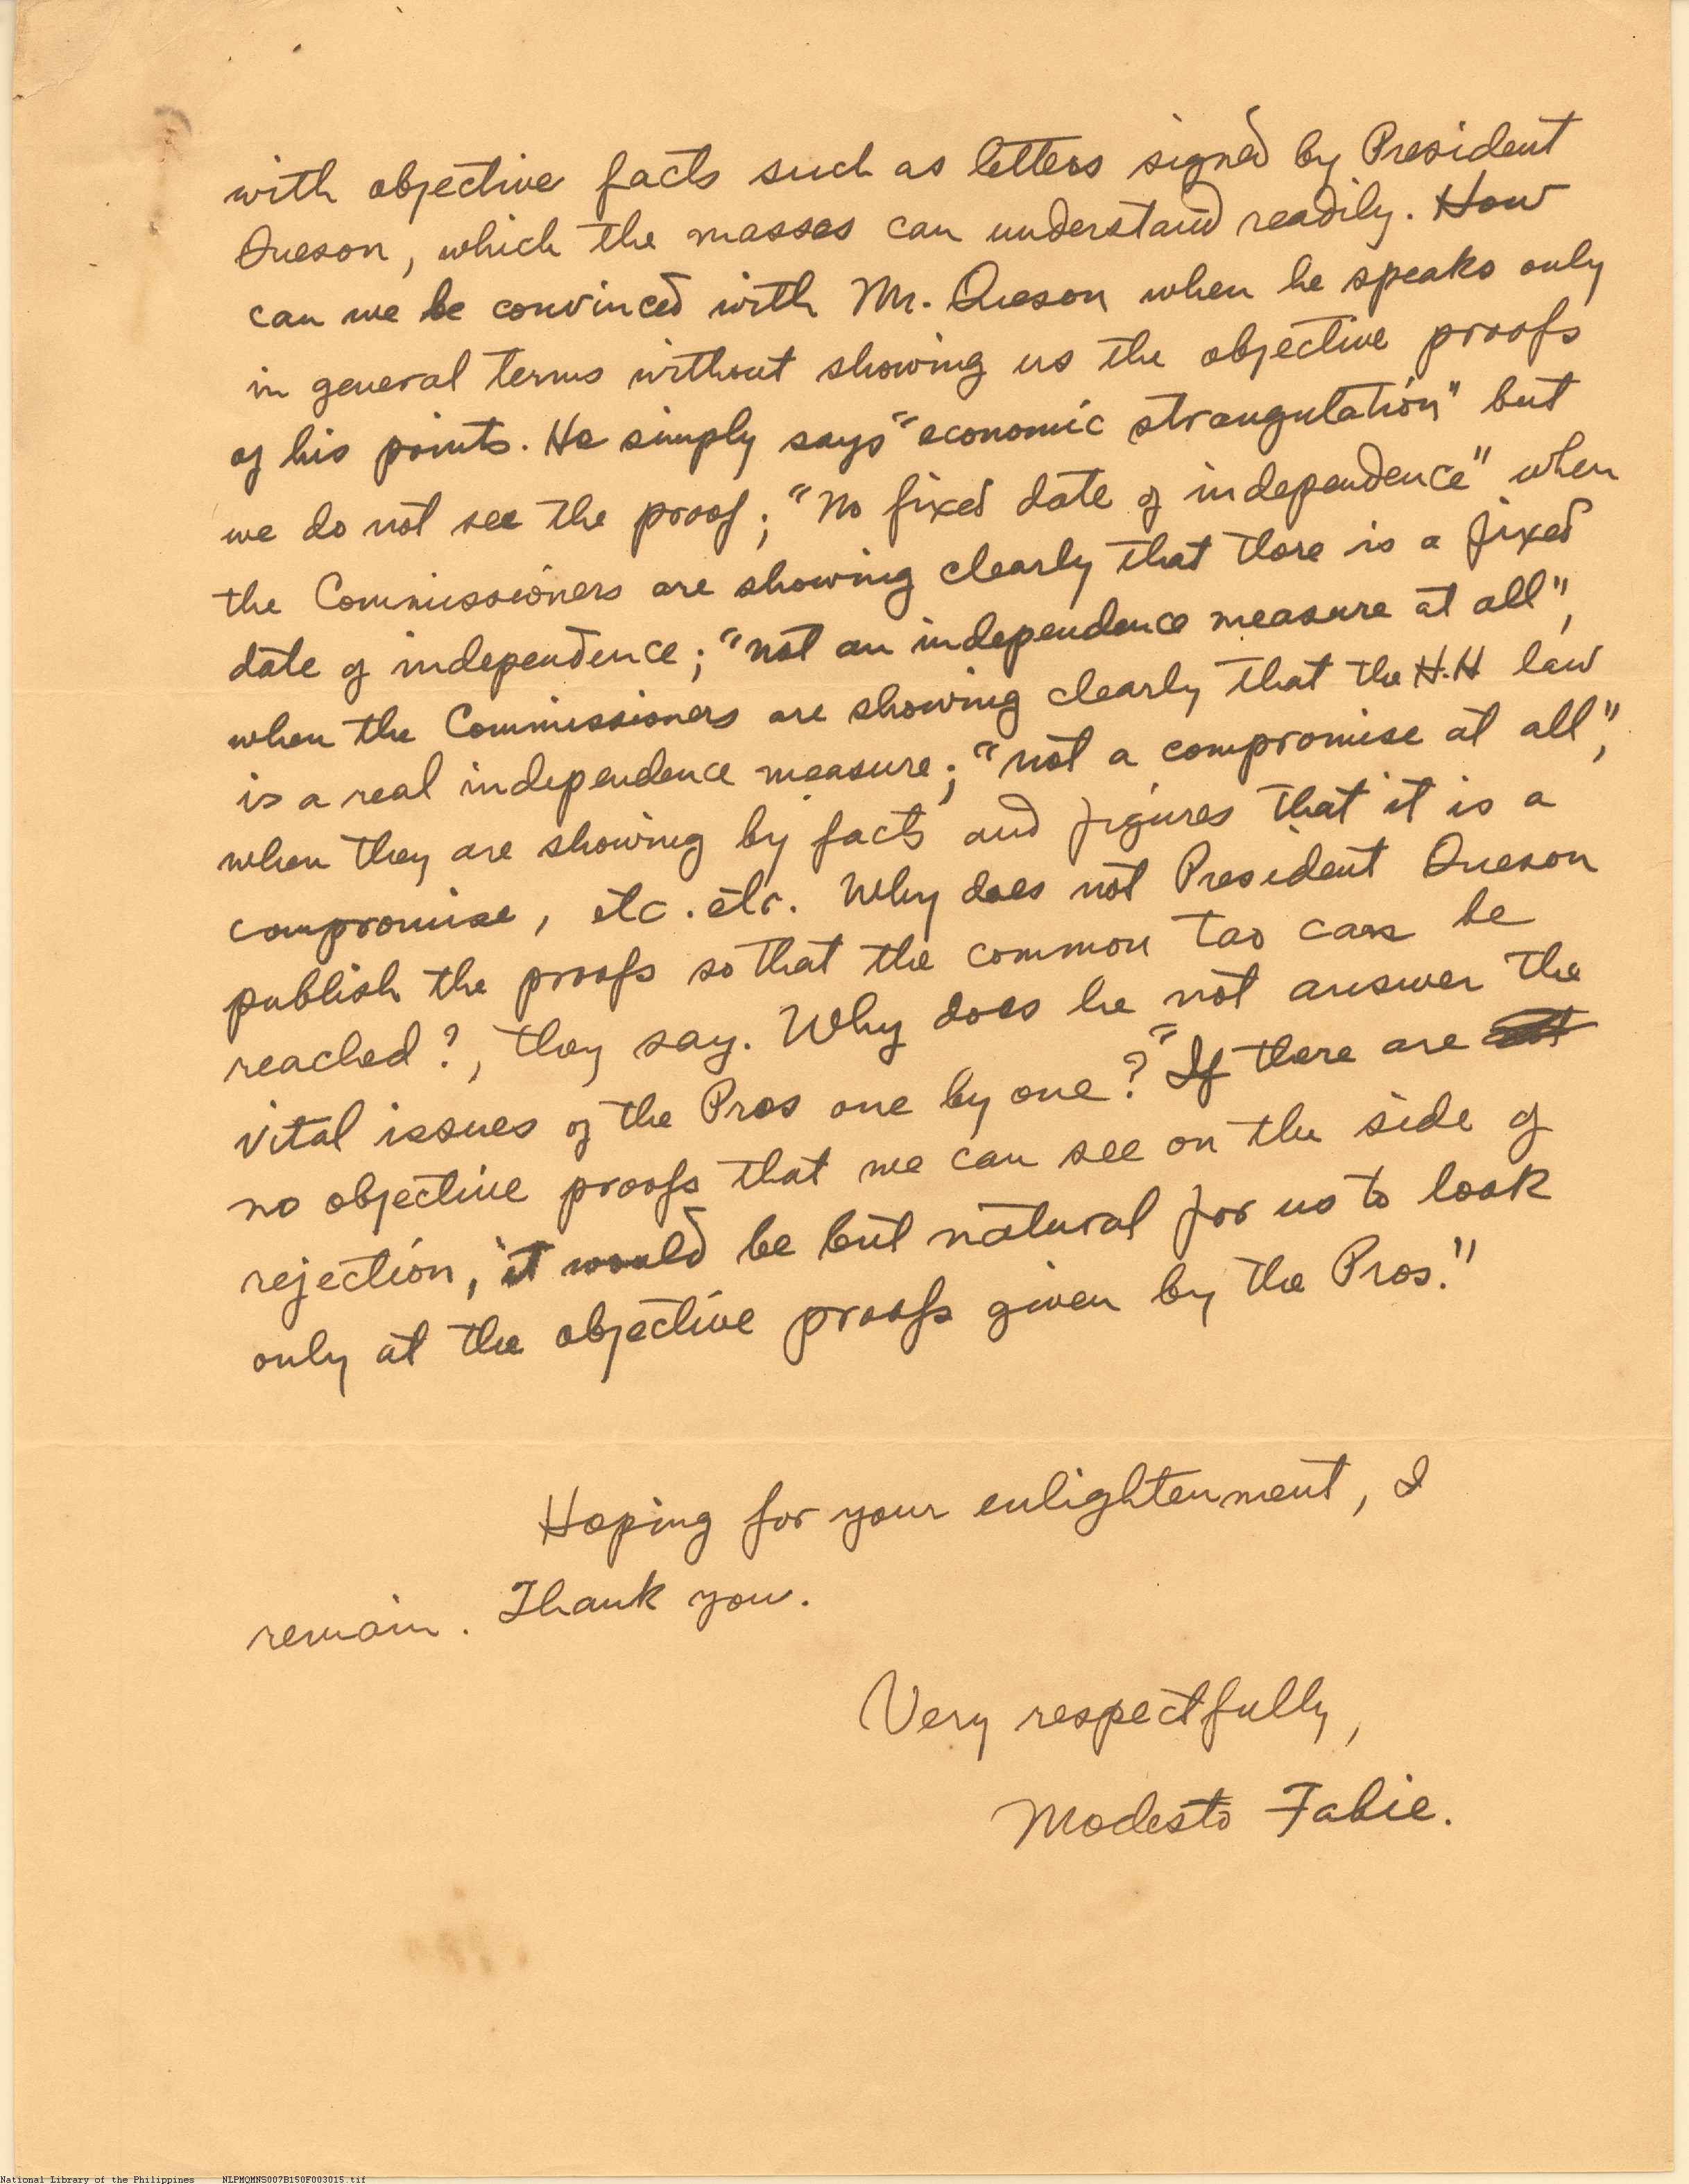 with objective facts such as letters signed by President
Queson, which the masses can understand readily. How
can we be convinced with Mr. Queson when he speaks only
in general terms without showing us the objective proofs
of his points. He simply says "economic strangulation" but
we do not see the proof; "No fixed date of independence" when
the Commissioners are showing clearly that there is a fixed
date of independence; "not an independence measure at all",
when the Commissioners are showing clearly that the H.H law
is a real independence measure; "not a compromise at all",
when they are showing by facts and figures that it is a
compromise, etc. etc. Why does not President Queson
publish the proofs so that the common tao can be
reached?, they say. Why does he not answer the
vital issues of the Pros one by one? "If there are
no objective proofs that we can see on the side of
rejection, it would be but natural for us to look
only at the objective proofs given by the Pros."
Hoping for your enlightenment, I
remain. Thank you.
Very respectfully,
Modesto Fabie.
National Library of the Philippines NLPMQMNS007B150F003015.tif